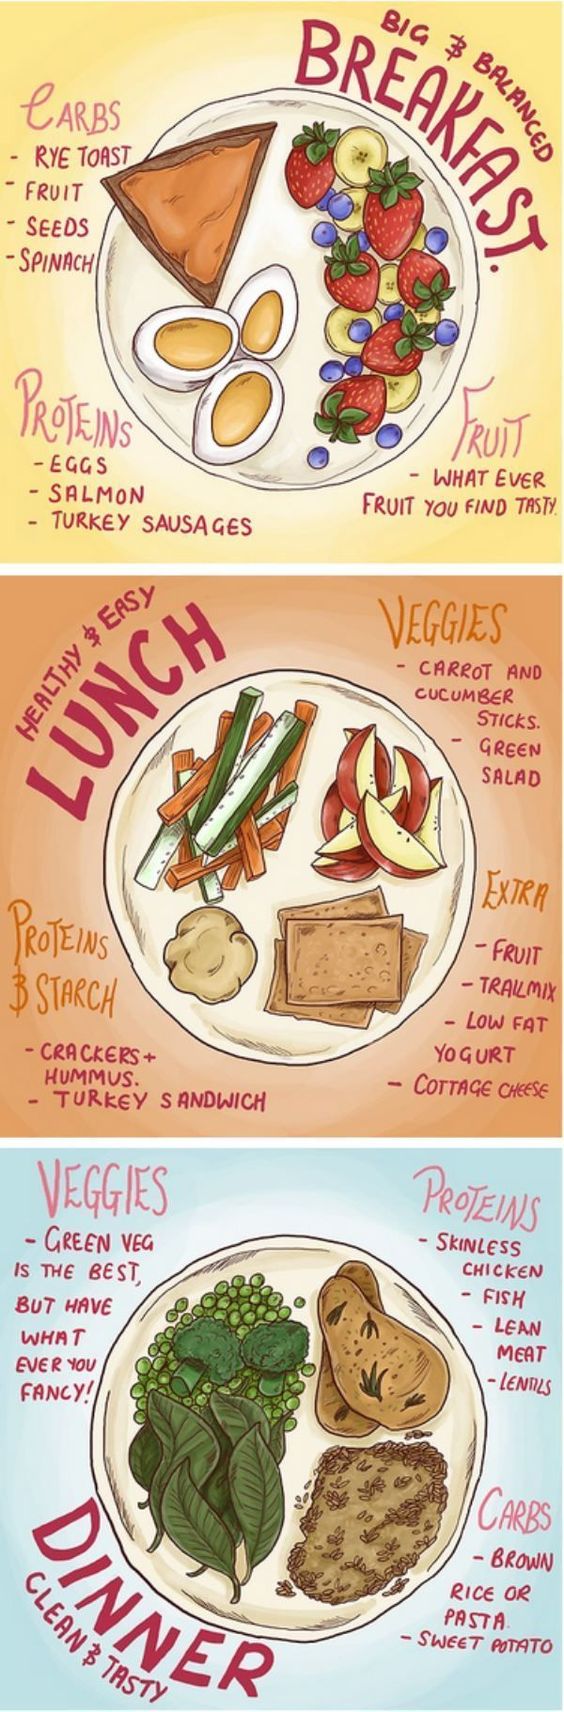 BIG & BALANCED
BREAKFAST.
CARBS
- RYE TOAST
- FRUIT
- SEEDS
- SPINACH
PROTEINS
- EGGS
- SALMON
- TURKEY SAUSAGES
FRUIT
- WHAT EVER
FRUIT YOU FIND TASTY.
HEALTHY & EASY
LUNCH
VEGGIES
- CARROT AND
CUCUMBER
STICKS.
- GREEN
SALAD
PROTEINS
& STARCH
- CRACKERS +
HUMMUS.
- TURKEY SANDWICH
EXTRA
- FRUIT
- TRAILMIX
- LOW FAT
YOGURT
- COTTAGE CHEESE
VEGGIES
- GREEN VEG
IS THE BEST,
BUT HAVE
WHAT
EVER YOU
FANCY!
PROTEINS
- SKINLESS
CHICKEN
- FISH
- LEAN
MEAT
- LENTILS
CARBS
- BROWN
RICE OR
PASTA.
- SWEET POTATO
DINNER
CLEAN & TASTY